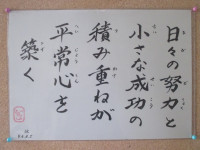 日々の努力と
小さな成功の
積み重ねが
平常心を
築く